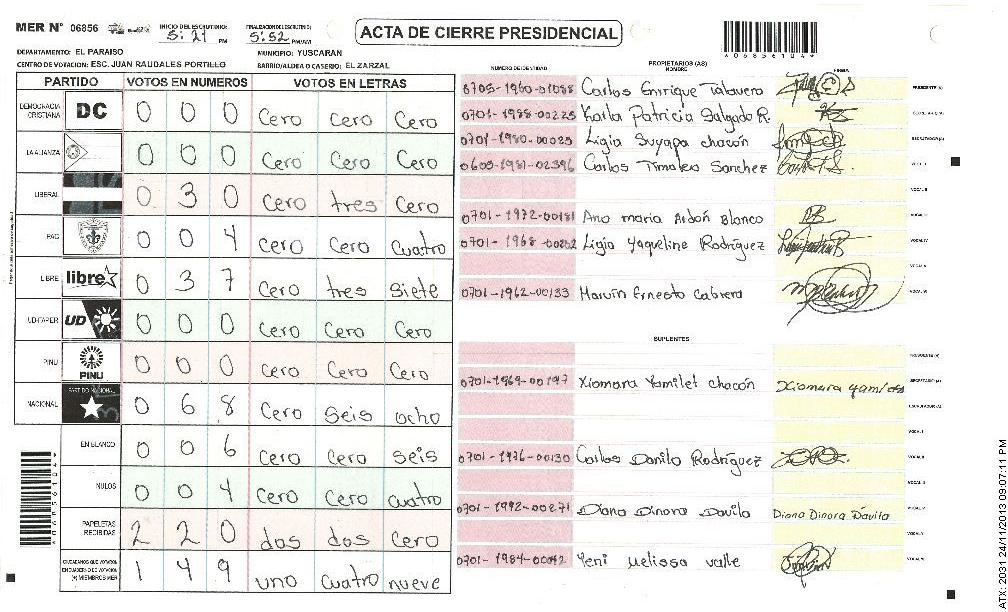 MER N° 06856
INICIO DEL ESCRUTINIO: 5:21 PM
FINALIZACION DEL ESCRUTINIO: 5:52 PM/AM
ACTA DE CIERRE PRESIDENCIAL
*06856104*
DEPARTAMENTO: EL PARAISO
MUNICIPIO: YUSCARAN
CENTRO DE VOTACION: ESC. JUAN RAUDALES PORTILLO
BARRIO/ALDEA O CASERIO: EL ZARZAL
PARTIDO VOTOS EN NUMEROS VOTOS EN LETRAS
DEMOCRACIA CRISTIANA DC 0 0 0 Cero Cero Cero
LA ALIANZA 0 0 0 Cero Cero Cero
LIBERAL 0 3 0 Cero tres Cero
PAC 0 0 4 Cero Cero Cuatro
LIBRE libre 0 3 7 Cero tres Siete
UD-FAPER UD 0 0 0 Cero Cero Cero
PINU PINU 0 0 0 Cero Cero Cero
NACIONAL PARTIDO NACIONAL 0 6 8 Cero Seis ocho
EN BLANCO 0 0 6 Cero Cero Seis
NULOS 0 0 4 Cero Cero Cuatro
PAPELETAS RECIBIDAS 2 2 0 dos dos Cero
CIUDADANOS QUE VOTARON 1 4 9 uno Cuatro nueve
(+) MIEMBROS MER
*06856104*
NUMERO DE IDENTIDAD PROPIETARIOS (AS) NOMBRE FIRMA
Carlos Enrique Talavera PRESIDENTE (A)
0701-1988-00225 Karla Patricia Salgado R. SECRETARIO (A)
0701-1980-00025 Ligia Suyapa chacón ESCRUTADOR (A)
Carlos Timoteo Sanchez VOCAL I
VOCAL II
0701-1972-00181 Ana maria Ardón Blanco VOCAL III
Ligia Yaqueline Rodríguez VOCAL IV
VOCAL V
0701-1962-00133 Marvin Ernesto Cabrera VOCAL VI
SUPLENTES
PRESIDENTE (A)
0701-1969-00197 Xiomara Yamilet chacón SECRETARIO (A)
ESCRUTADOR (A)
VOCAL I
0701-1976-00130 Carlos Danilo Rodríguez VOCAL II
VOCAL III
0701-1992-00271 Diana Dinora Davila Diana Dinora Davila VOCAL IV
VOCAL V
0701-1984-00042 Yeni Melissa valle VOCAL VI
ATX: 2031 24/11/2013 09:07:11 PM